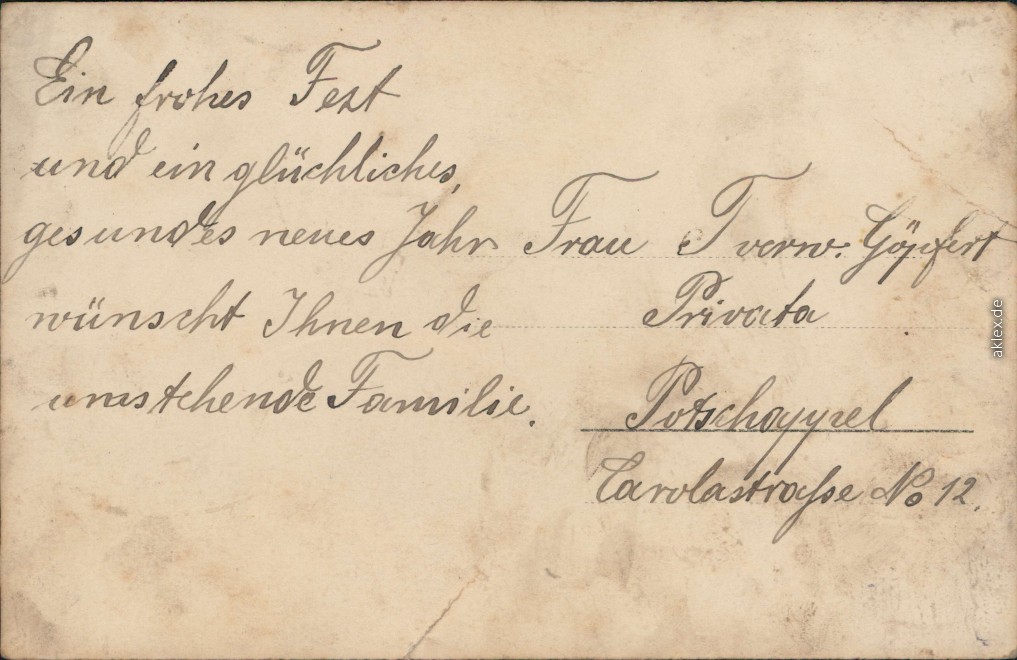 Ein frohes Fest
und ein glückliches,
gesundes neues Jahr
wünscht Ihnen die
umstehende Familie.
Frau T verw. Göpfert
Privata
Potschappel
Carolastraße No 12.
aklex.de